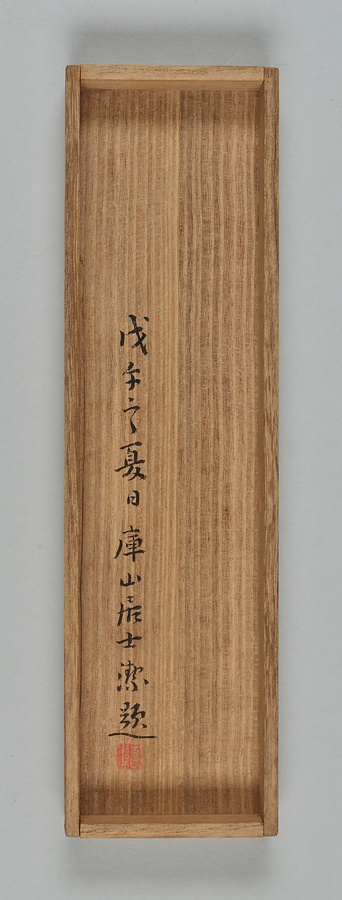 戊午之夏日庫山居士潔題